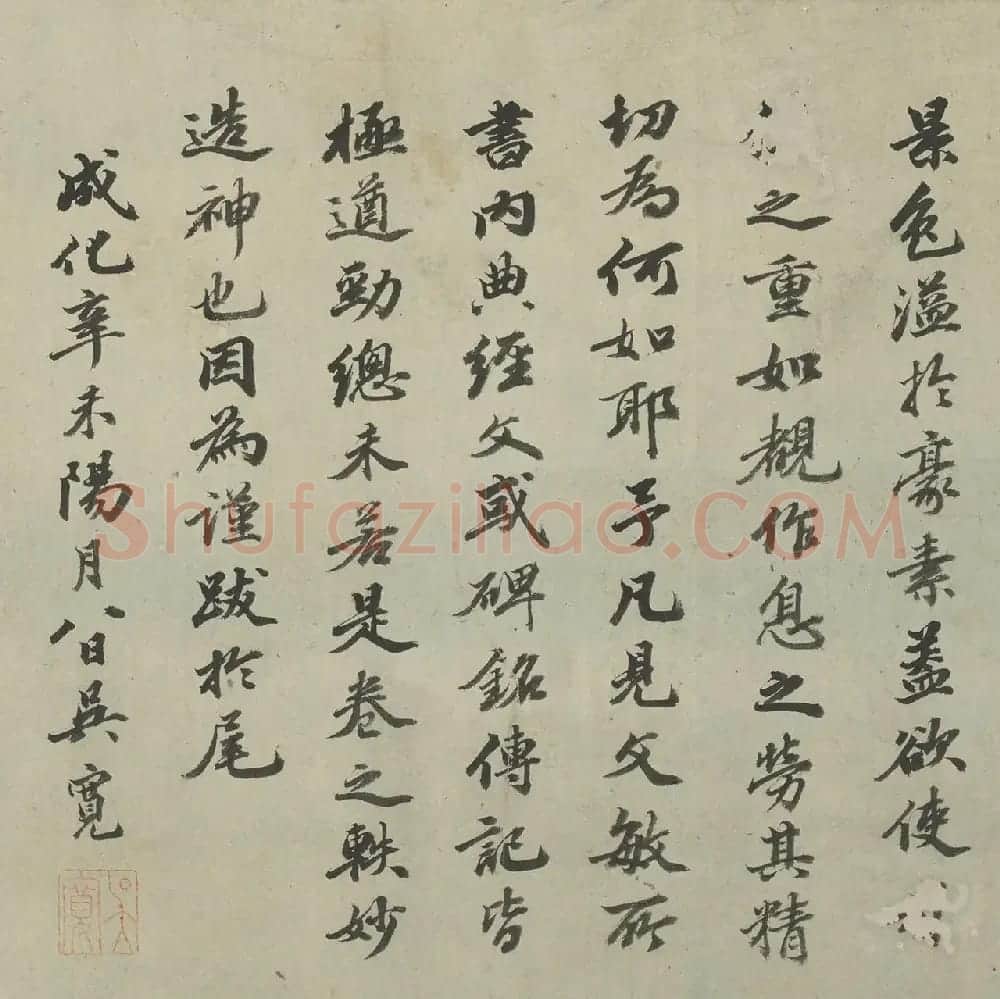 景色溢於豪素蓋欲使
之重如覩作息之勞其精
切為何如耶予凡見文敏所
書內典經文或碑銘傳記皆
極遒勁總未若是卷之軼妙
造神也因為謹跋於尾
成化辛未陽月八日吳寬
吳寬
Shufaziliao.COM